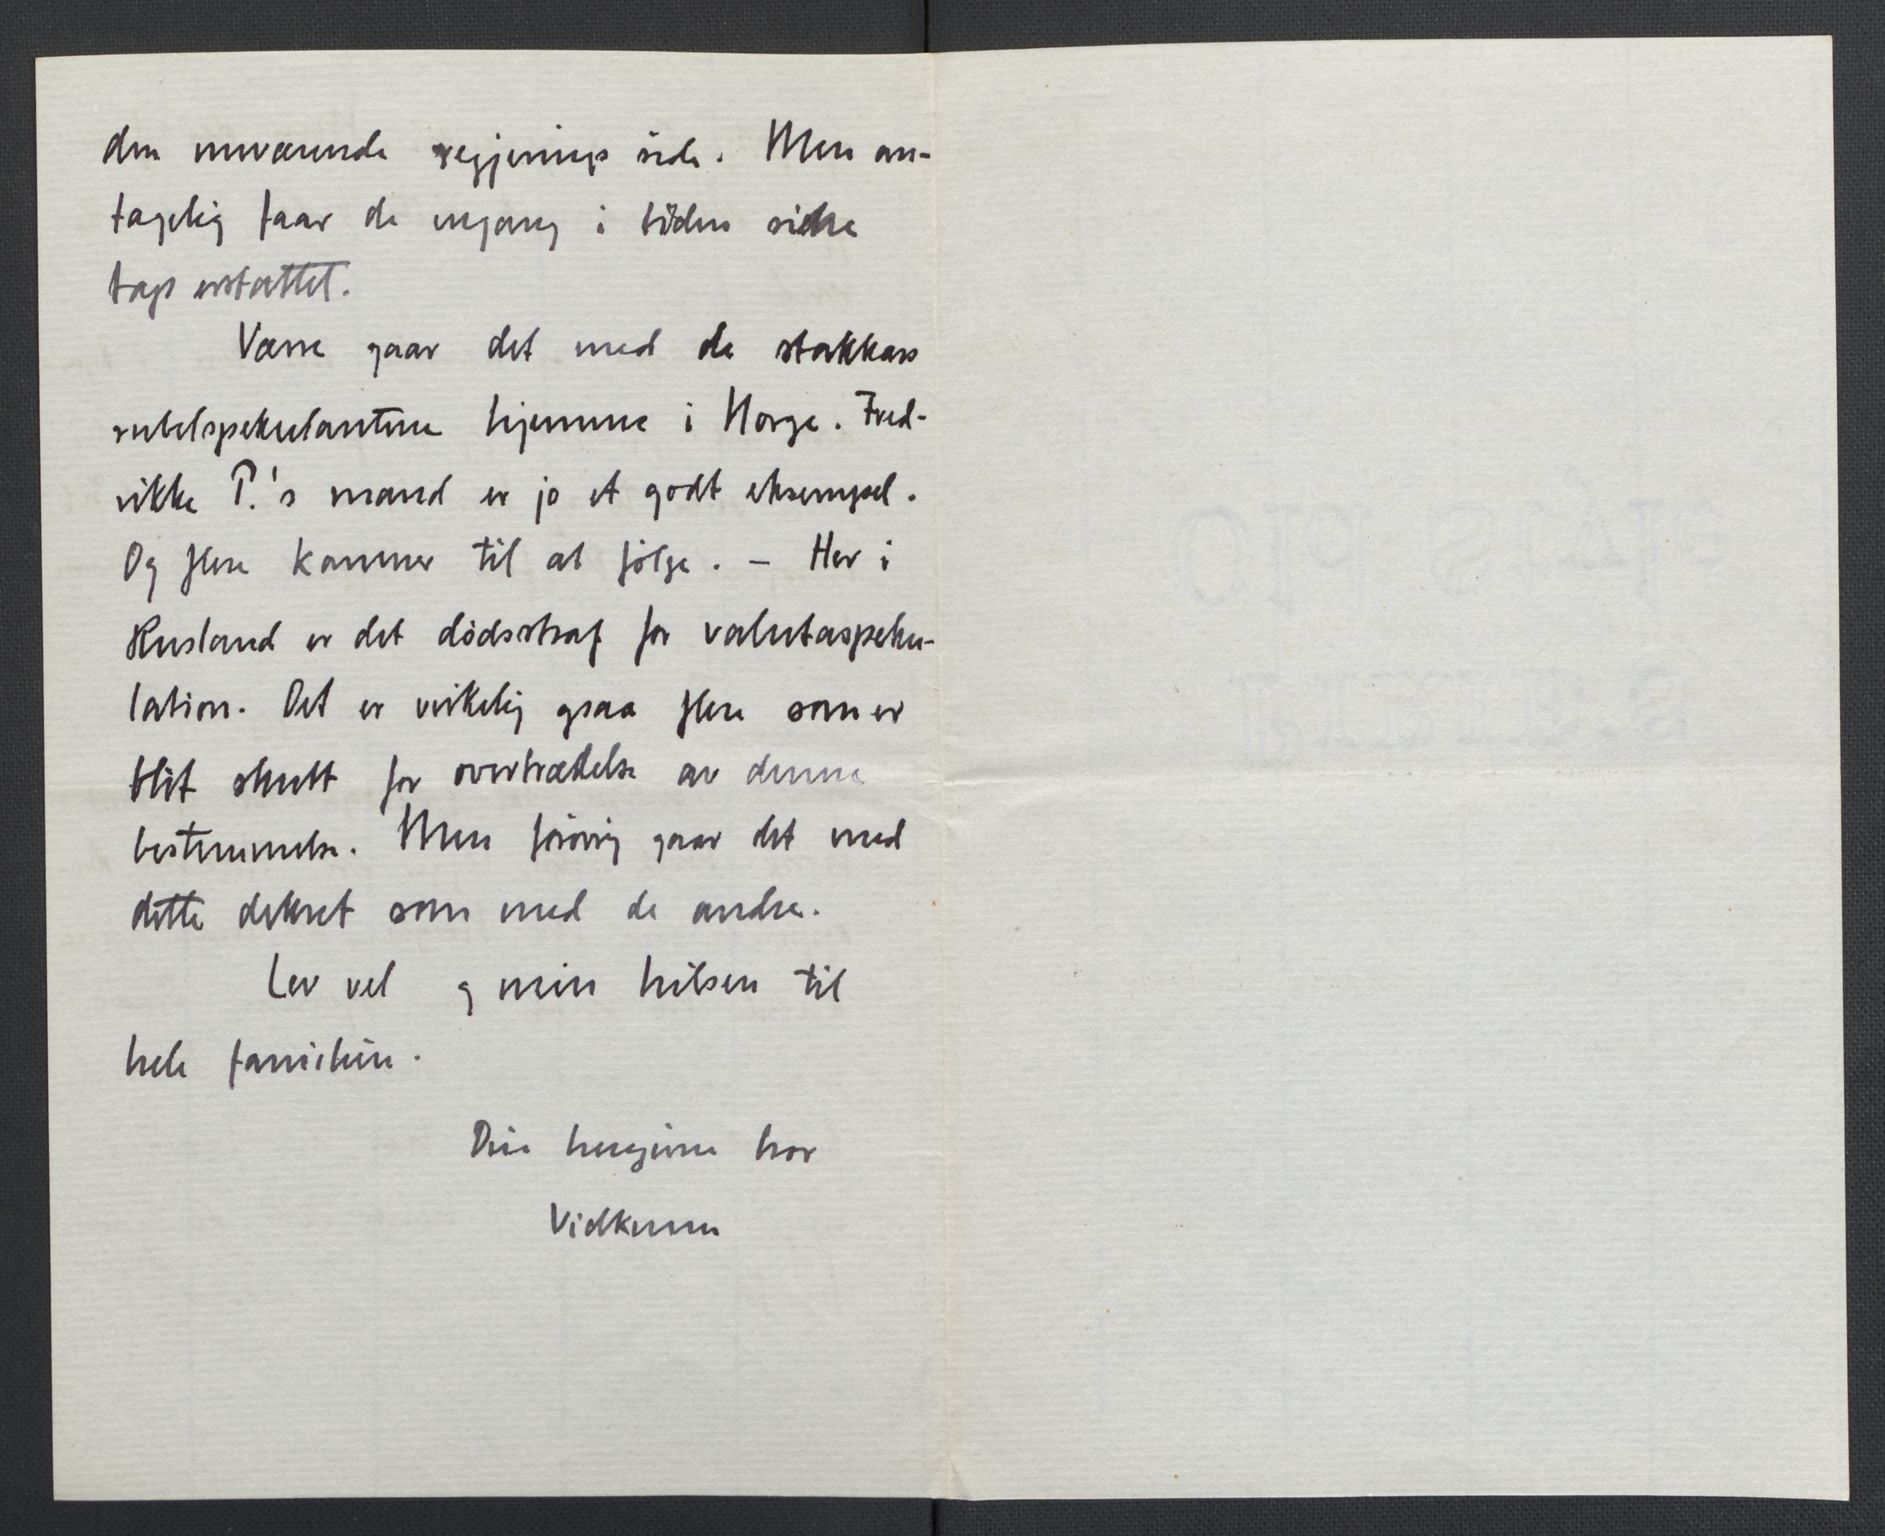 den nuværende regjerings side. Men an-
tagelig faar de engang i tiden sine
tap erstattet.
Værre gaar det med de stakkars
rubelspekulantene hjemme i Norge. Fred-
rikke P.'s mand er jo et godt eksempel.
Og flere kommer til at følge. – Her i
Rusland er det dødsstraf for valutaspeku-
lation. Det er virkelig ogsaa flere som er
blit skutt for overtrædelse av denne
bestemmelse. Men forøvrig gaar det med
dette dekret som med de andre.
Lev vel og min hilsen til
hele familien.
Din hengivne bror
Vidkunn